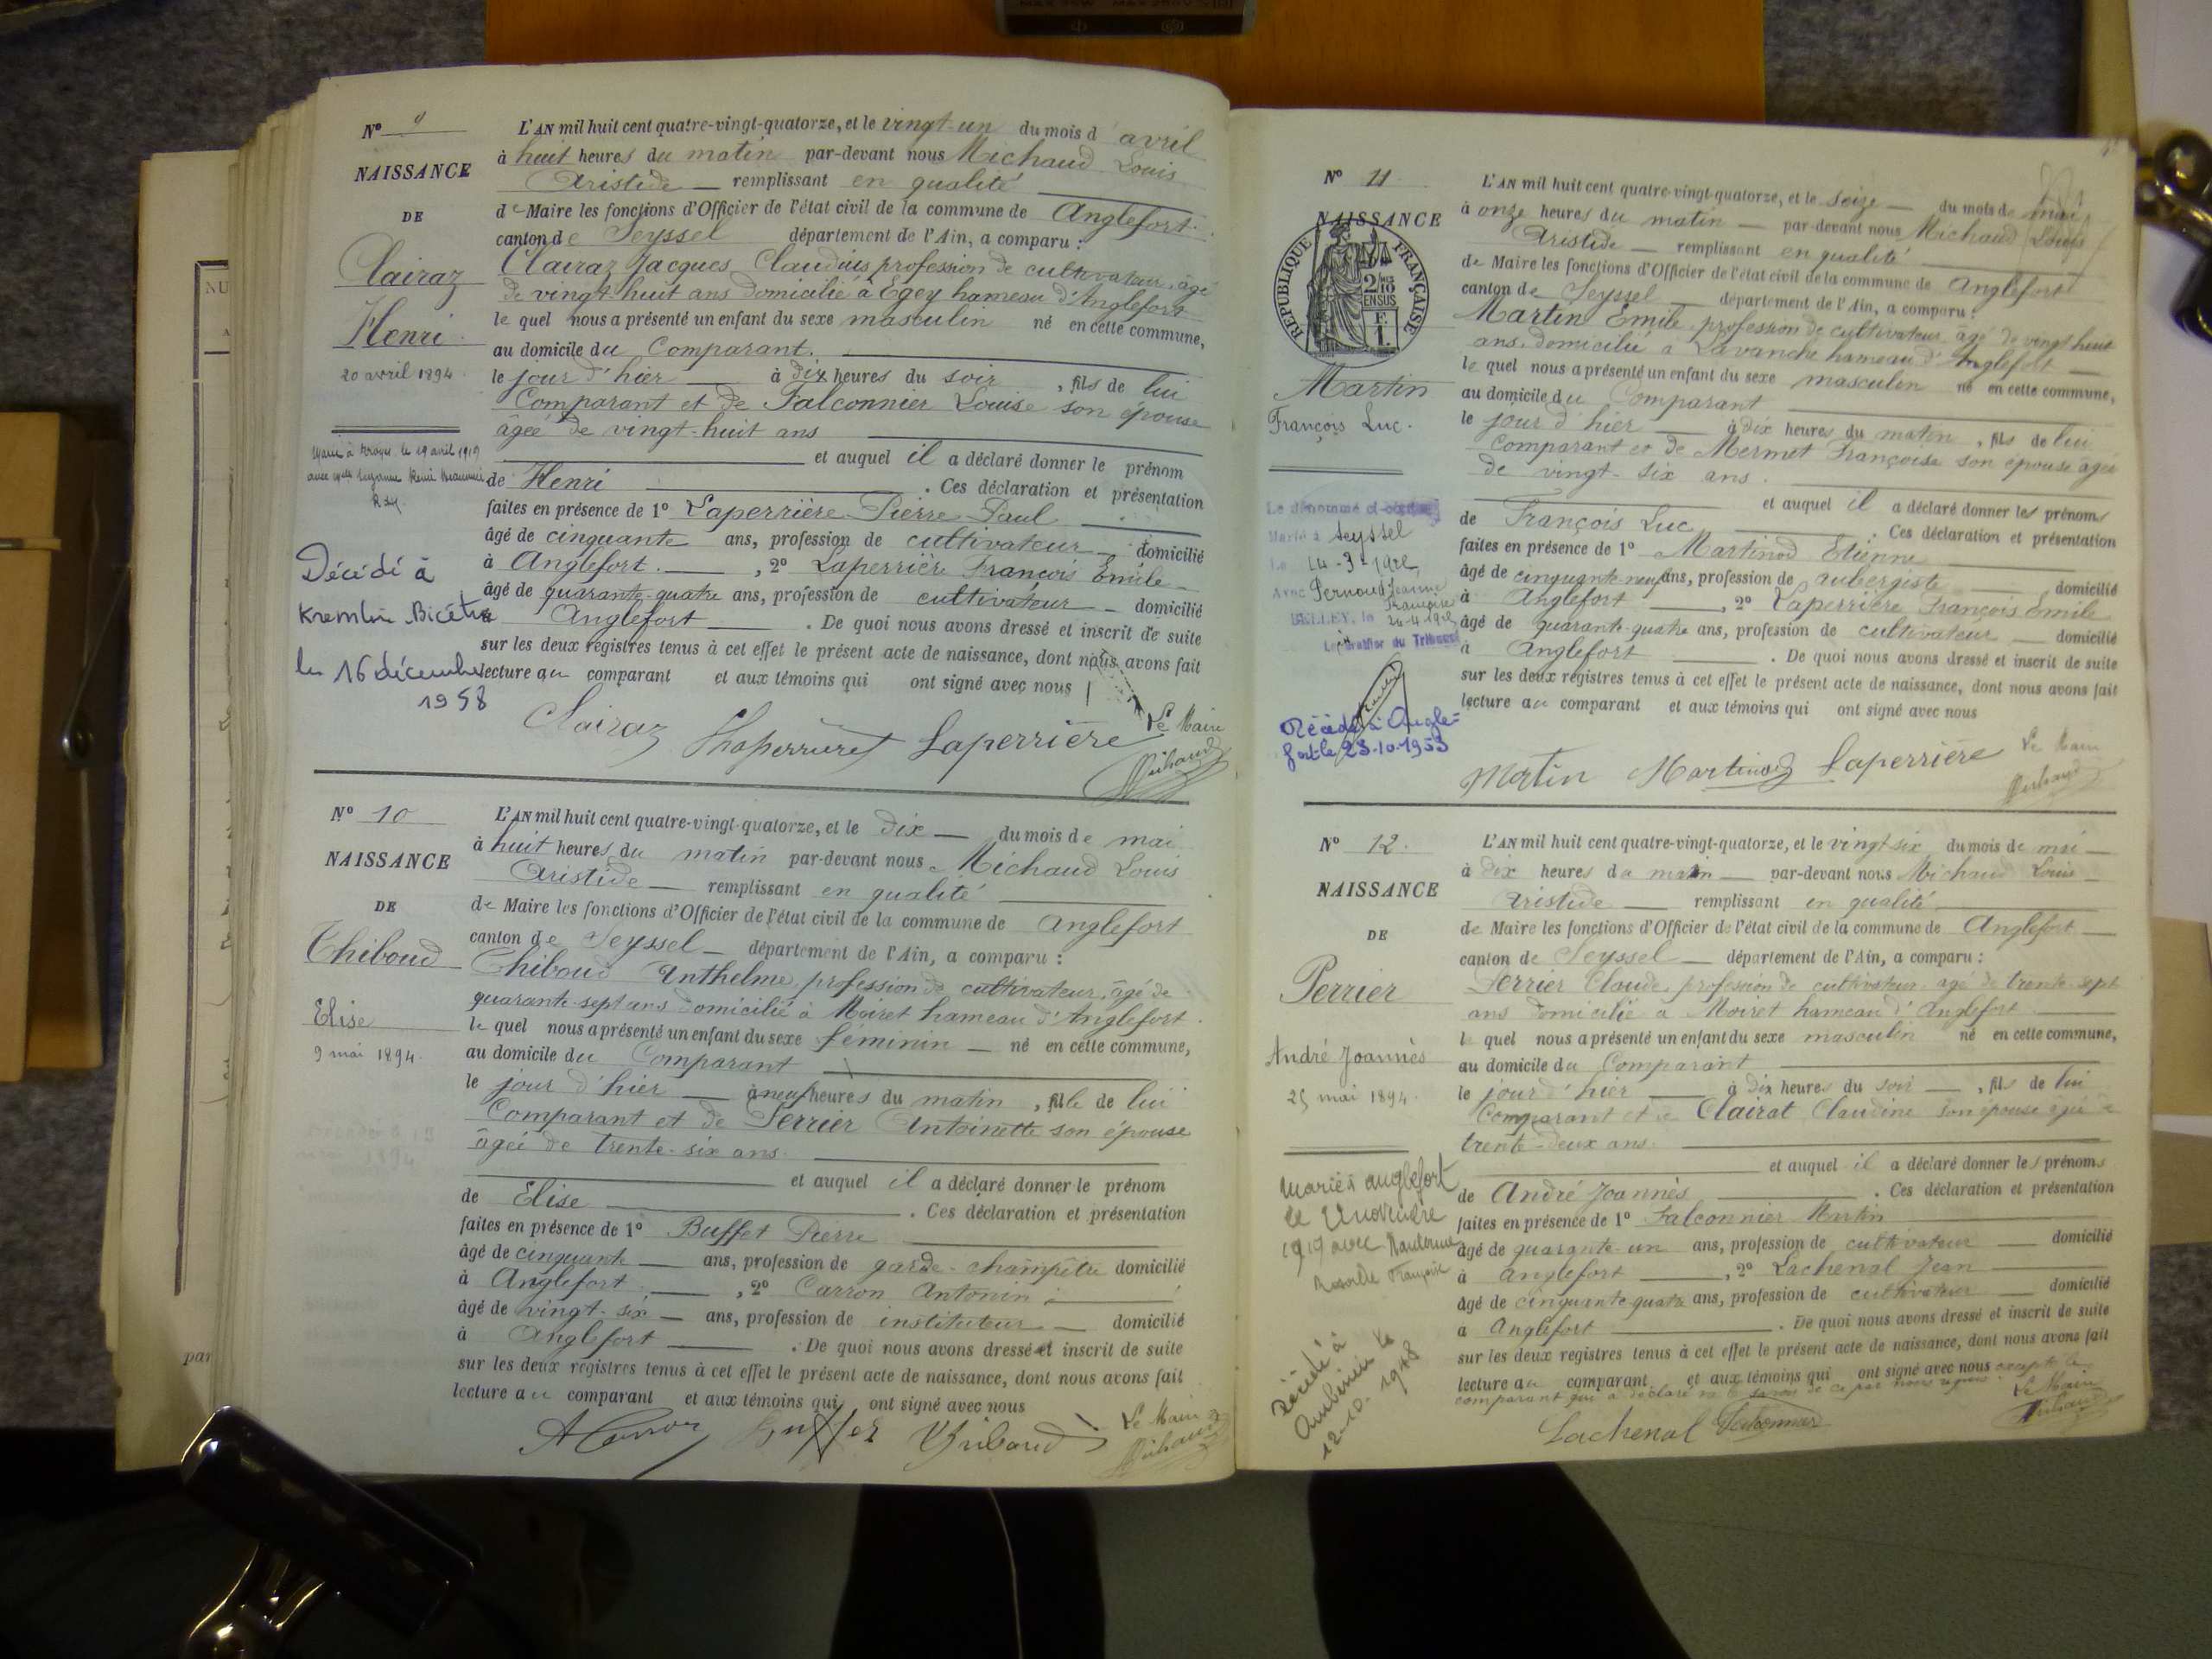 N° 9
NAISSANCE
DE
Clairaz
Henri
20 avril 1894
Marié à Troyes le 19 avril 1919
Décédé à
Kremlin Bicêtre
le 16 décembre
1958
L'AN mil huit cent quatre-vingt-quatorze, et le vingt-un du mois d'avril
à huit heures du matin par-devant nous Michaud Louis
Aristide remplissant en qualité
de Maire les fonctions d'Officier de l'état civil de la commune de Anglefort
canton de Seyssel département de l'Ain, a comparu :
Clairaz Jacques Claudius profession de cultivateur, âgé
de vingt-huit ans domicilié à Egey hameau d'Anglefort
le quel nous a présenté un enfant du sexe masculin né en cette commune,
au domicile du Comparant.
le jour d'hier à dix heures du soir, fils de lui
Comparant et de Falconnier Louise son épouse
âgée de vingt-huit ans
et auquel il a déclaré donner le prénom
de Henri. Ces déclaration et présentation
faites en présence de 1° Laperrière Pierre Paul
âgé de cinquante ans, profession de cultivateur domicilié
à Anglefort, 2° Laperrière François Emile
âgé de quarante-quatre ans, profession de cultivateur domicilié
à Anglefort. De quoi nous avons dressé et inscrit de suite
sur les deux registres tenus à cet effet le présent acte de naissance, dont nous avons fait
lecture au comparant et aux témoins qui ont signé avec nous
Clairaz Laperrière Le Maire
Michaud
N° 10
NAISSANCE
DE
Thiboud
Elise
9 mai 1894
L'AN mil huit cent quatre-vingt-quatorze, et le dix du mois de mai
à huit heures du matin par-devant nous Michaud Louis
Aristide remplissant en qualité
de Maire les fonctions d'Officier de l'état civil de la commune de Anglefort
canton de Seyssel département de l'Ain, a comparu :
Thiboud Anthelme, profession de cultivateur, âgé de
quarante-sept ans domicilié à Moiret hameau d'Anglefort
le quel nous a présenté un enfant du sexe féminin né en cette commune,
au domicile du Comparant
le jour d'hier à neuf heures du matin, fille de lui
Comparant et de Perrier Antoinette son épouse
âgée de trente-six ans.
et auquel il a déclaré donner le prénom
de Elise. Ces déclaration et présentation
faites en présence de 1° Buffet Pierre
âgé de cinquante ans, profession de garde-champêtre domicilié
à Anglefort, 2° Carron Antonin
âgé de vingt-six ans, profession de instituteur domicilié
à Anglefort. De quoi nous avons dressé et inscrit de suite
sur les deux registres tenus à cet effet le présent acte de naissance, dont nous avons fait
lecture au comparant et aux témoins qui ont signé avec nous
A Carron Buffet Thiboud Le Maire
Michaud
N° 11
NAISSANCE
RÉPUBLIQUE FRANÇAISE
Martin
François Luc.
Marié à Seyssel
Le 24-3-1922
Avec Pernoud Jeanne
Françoise
BELLEY, le 24-4-1922
Le Greffier du Tribunal
Décédé à Angle=
fort le 23-10-1953
L'AN mil huit cent quatre-vingt-quatorze, et le seize du mois de mai
à onze heures du matin par-devant nous Michaud Louis
Aristide remplissant en qualité
de Maire les fonctions d'Officier de l'état civil de la commune de Anglefort
canton de Seyssel département de l'Ain, a comparu :
Martin Emile profession de cultivateur âgé de vingt huit
ans. domicilié à Lavanche hameau d'Anglefort
le quel nous a présenté un enfant du sexe masculin né en cette commune,
au domicile du Comparant
le jour d'hier à dix heures du matin, fils de lui
Comparant et de Mermet Françoise son épouse âgée
de vingt-six ans.
et auquel il a déclaré donner les prénoms
de François Luc. Ces déclaration et présentation
faites en présence de 1° Martinod Etienne
âgé de cinquante-neuf ans, profession de aubergiste domicilié
à Anglefort, 2° Laperrière François Emile
âgé de quarante-quatre ans, profession de cultivateur domicilié
à Anglefort. De quoi nous avons dressé et inscrit de suite
sur les deux registres tenus à cet effet le présent acte de naissance, dont nous avons fait
lecture au comparant et aux témoins qui ont signé avec nous
Martin Martinod Laperrière Le Maire
Michaud
N° 12.
NAISSANCE
DE
Perrier
André Joannès
25 mai 1894.
Marié à Anglefort
le 2 novembre
1919 avec
Décédé à
Ambérieu le
12-10-1948
L'AN mil huit cent quatre-vingt-quatorze, et le vingt six du mois de mai
à dix heures du matin par-devant nous Michaud Louis
Aristide remplissant en qualité
de Maire les fonctions d'Officier de l'état civil de la commune de Anglefort
canton de Seyssel département de l'Ain, a comparu :
Perrier Claude, profession de cultivateur, âgé de trente-sept
ans domicilié à Moiret hameau d'Anglefort
le quel nous a présenté un enfant du sexe masculin né en cette commune,
au domicile du Comparant
le jour d'hier à dix heures du soir, fils de lui
Comparant et de Clairat Claudine son épouse âgée de
trente-deux ans.
et auquel il a déclaré donner les prénoms
de André Joannès. Ces déclaration et présentation
faites en présence de 1° Falconnier Martin
âgé de quarante-un ans, profession de cultivateur domicilié
à Anglefort, 2° Lachenal Jean
âgé de cinquante-quatre ans, profession de cultivateur domicilié
à Anglefort. De quoi nous avons dressé et inscrit de suite
sur les deux registres tenus à cet effet le présent acte de naissance, dont nous avons fait
lecture au comparant et aux témoins qui ont signé avec nous excepté le
comparant qui a déclaré ne le savoir de ce par nous requis. Le Maire
Lachenal Falconnier Michaud